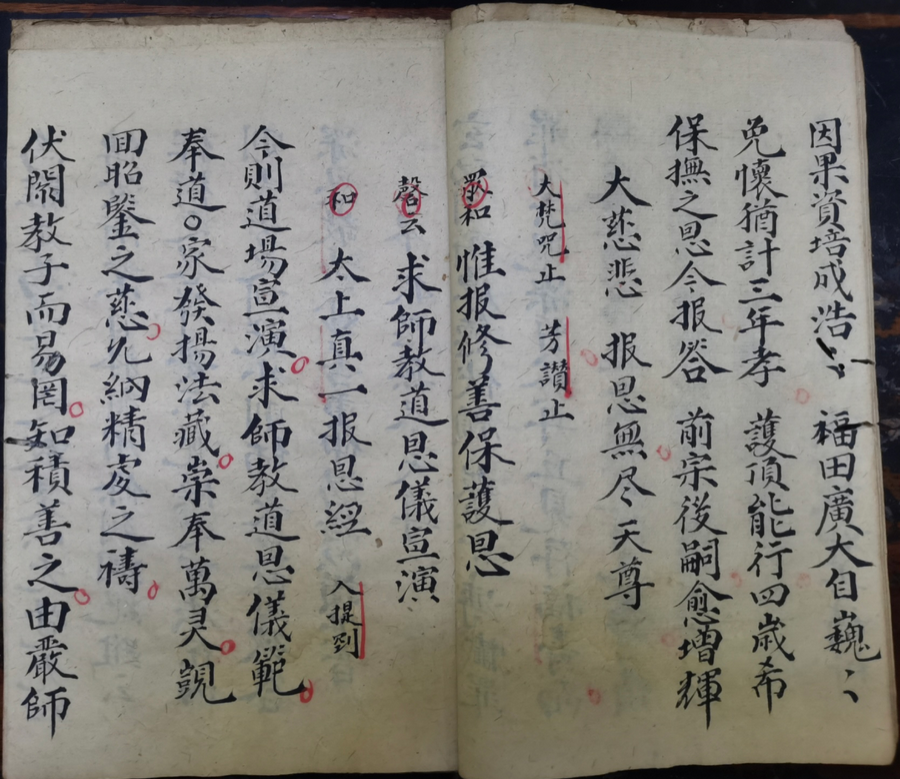 因果資培成浩〻 福田廣大自巍〻
免懷猶計三年孝 護頂能行四歲希
保撫之恩今报答 前宗後嗣愈增輝
大慈悲 报恩無尽天尊
大梵咒止 芳讚止
眾和 惟报修善保護恩
磬云 求師教道恩儀宣演
和 太上真一报恩經 入提到
今則道場宣演求師教道恩儀範
奉道○家發揚法藏崇奉萬灵覬
回昭鑒之慈允納精虔之禱
伏聞教子而易罔知積善之由嚴師